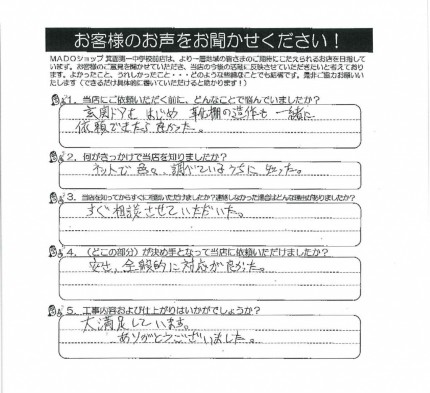 お客様のお声をお聞かせください！
MADOショップ 箕面第一中学校前店は、より一層地域の皆さまのご期待にこたえられるお店を目指して
います。お客様のご意見を聞かせていただき、当店の今後の活動に反映させていただきたいと考えており
ます。よかったこと、うれしかったこと・・・どのような些細なことでも結構です。是非ご協力お願いい
たします（できるだけ具体的に書いていただけると助かります！）
1．当店にご依頼いただく前に、どんなことで悩んでいましたか？
玄関ドアをはじめ 靴棚の造作も一緒に
依頼できたら良かった。
2．何がきっかけで当店を知りましたか？
ネットで色々、調べているうちに知った。
3．当店を知ってからすぐに相談いただけましたか？連絡しなかった場合はどんな理由がありましたか？
すぐ相談させていただいた。
4．（どこの部分）が決め手となって当店に依頼いただけましたか？
安さ、全般的に対応が良かった。
5．工事内容および仕上がりはいかがでしょうか？
大満足しています。
ありがとうございました。